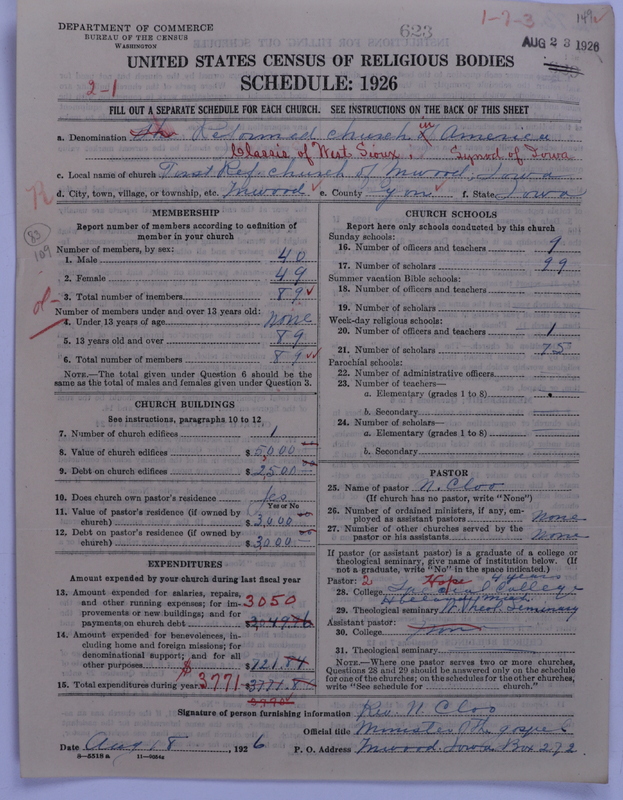 1-2-3
149
DEPARTMENT OF COMMERCE
BUREAU OF THE CENSUS
WASHINGTON
623
AUG 23 1926
UNITED STATES CENSUS OF RELIGIOUS BODIES
SCHEDULE: 1926
2-1
FILL OUT A SEPARATE SCHEDULE FOR EACH CHURCH. SEE INSTRUCTIONS ON THE BACK OF THIS SHEET
a. Denomination The Reformed church in America
Classis of West Sioux, Synod of Iowa
c. Local name of church First Ref. church of Inwood, Iowa
d. City, town, village, or township, etc. Inwood e. County Lyon f. State Iowa
83
109
MEMBERSHIP
Report number of members according to definition of
member in your church
Number of members, by sex:
1. Male 40
2. Female 49
3. Total number of members 89
Number of members under and over 13 years old:
4. Under 13 years of age none
5. 13 years old and over 89
6. Total number of members 89
NOTE.—The total given under Question 6 should be the
same as the total of males and females given under Question 3.
CHURCH BUILDINGS
See instructions, paragraphs 10 to 12
7. Number of church edifices 1
8. Value of church edifices $ 5,000
9. Debt on church edifices $ 2500
10. Does church own pastor's residence Yes
Yes or No
11. Value of pastor's residence (if owned by
church) $ 3,000
12. Debt on pastor's residence (if owned by
church) $ 3000
EXPENDITURES
Amount expended by your church during last fiscal year
13. Amount expended for salaries, repairs,
and other running expenses; for im- 3050
provements or new buildings; and for
payments on church debt $ 3,049.96
14. Amount expended for benevolences, in-
cluding home and foreign missions; for
denominational support; and for all
other purposes $ 721.87
15. Total expenditures during year $ 3771 $ 3771.8
CHURCH SCHOOLS
Report here only schools conducted by this church
Sunday schools:
16. Number of officers and teachers 9
17. Number of scholars 99
Summer vacation Bible schools:
18. Number of officers and teachers
19. Number of scholars
Week-day religious schools:
20. Number of officers and teachers 1
21. Number of scholars 75
Parochial schools:
22. Number of administrative officers
23. Number of teachers—
a. Elementary (grades 1 to 8)
b. Secondary
24. Number of scholars—
a. Elementary (grades 1 to 8)
b. Secondary
PASTOR
25. Name of pastor N. Cloo
(If church has no pastor, write "None")
26. Number of ordained ministers, if any, em-
ployed as assistant pastors None
27. Number of other churches served by the
pastor or his assistants None
If pastor (or assistant pastor) is a graduate of a college or
theological seminary, give name of institution below. (If
not a graduate, write "No" in the space indicated.)
Pastor: 2 Hope 4 years
28. College College
29. Theological seminary W. Theol. Seminary
Assistant pastor:
30. College
31. Theological seminary
NOTE.—Where one pastor serves two or more churches,
Questions 28 and 29 should be answered only on the schedule
for one of the churches; on the schedules for the other churches,
write "See schedule for church."
Signature of person furnishing information Rev. N. Cloo
Official title Minister of the gospel
Date Aug 18, 1926 P. O. Address Inwood, Iowa Box 272
8—5518a 11—9054a